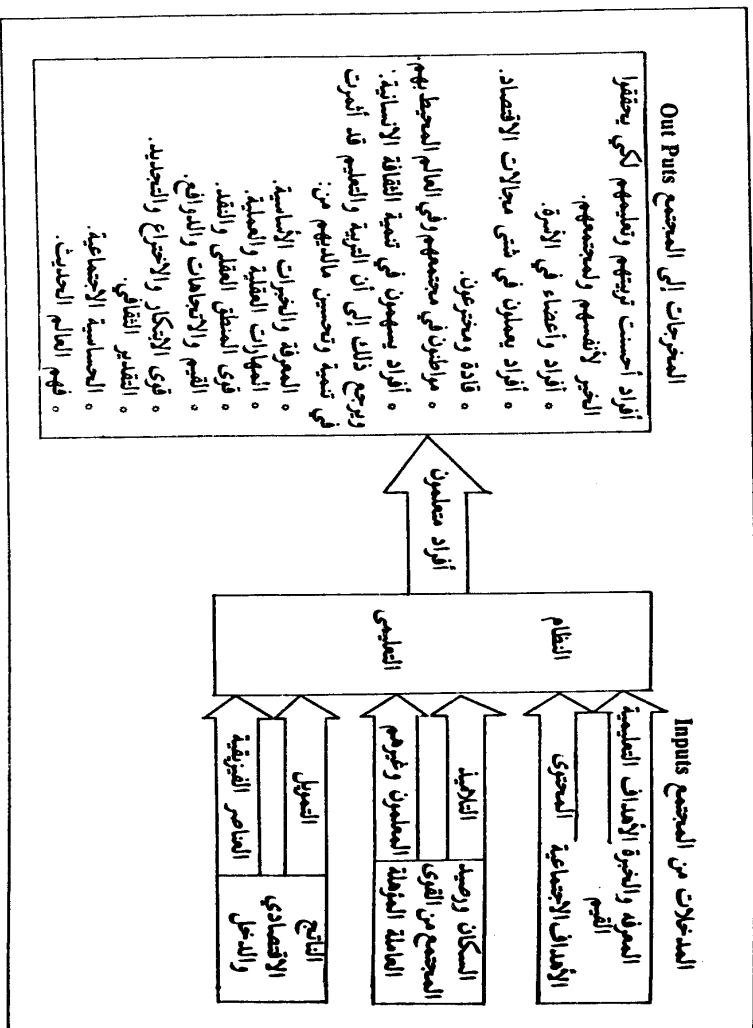 المدخلات من المجتمع Inputs
المعرفة والخبرة الأهداف التعليمية
القيم
الأهداف الاجتماعية المحتوى
السكان ورصيد
المجتمع من القوى
العاملة المؤهلة
التلاميذ
المعلمون وغيرهم
الناتج
الاقتصادي
والدخل
التمويل
العناصر الفيزيقية
النظام
التعليمى
أفراد متعلمون
المخرجات إلى المجتمع Out Puts
أفراد أحسنت تربيتهم وتعليمهم لكي يحققوا
الخير لأنفسهم ولمجتمعهم.
• أفراد وأعضاء في الأسرة.
• أفراد يعملون في شتى مجالات الاقتصاد.
• قادة ومخترعون.
• مواطنون في مجتمعهم وفي العالم المحيط بهم.
• أفراد يسهمون في تنمية الثقافة الانسانية:
ويرجع ذلك إلى أن التربية والتعليم قد أثمرت
في تنمية وتحسين مالديهم من:
• المعرفة والخبرات الأساسية.
• المهارات العقلية والعملية.
• قوى المنطق العقلى والنقد.
• القيم والاتجاهات والدوافع.
• قوى الابتكار والاختراع والتجديد.
• التقدير الثقافي.
• الحساسية الاجتماعية.
• فهم العالم الحديث.